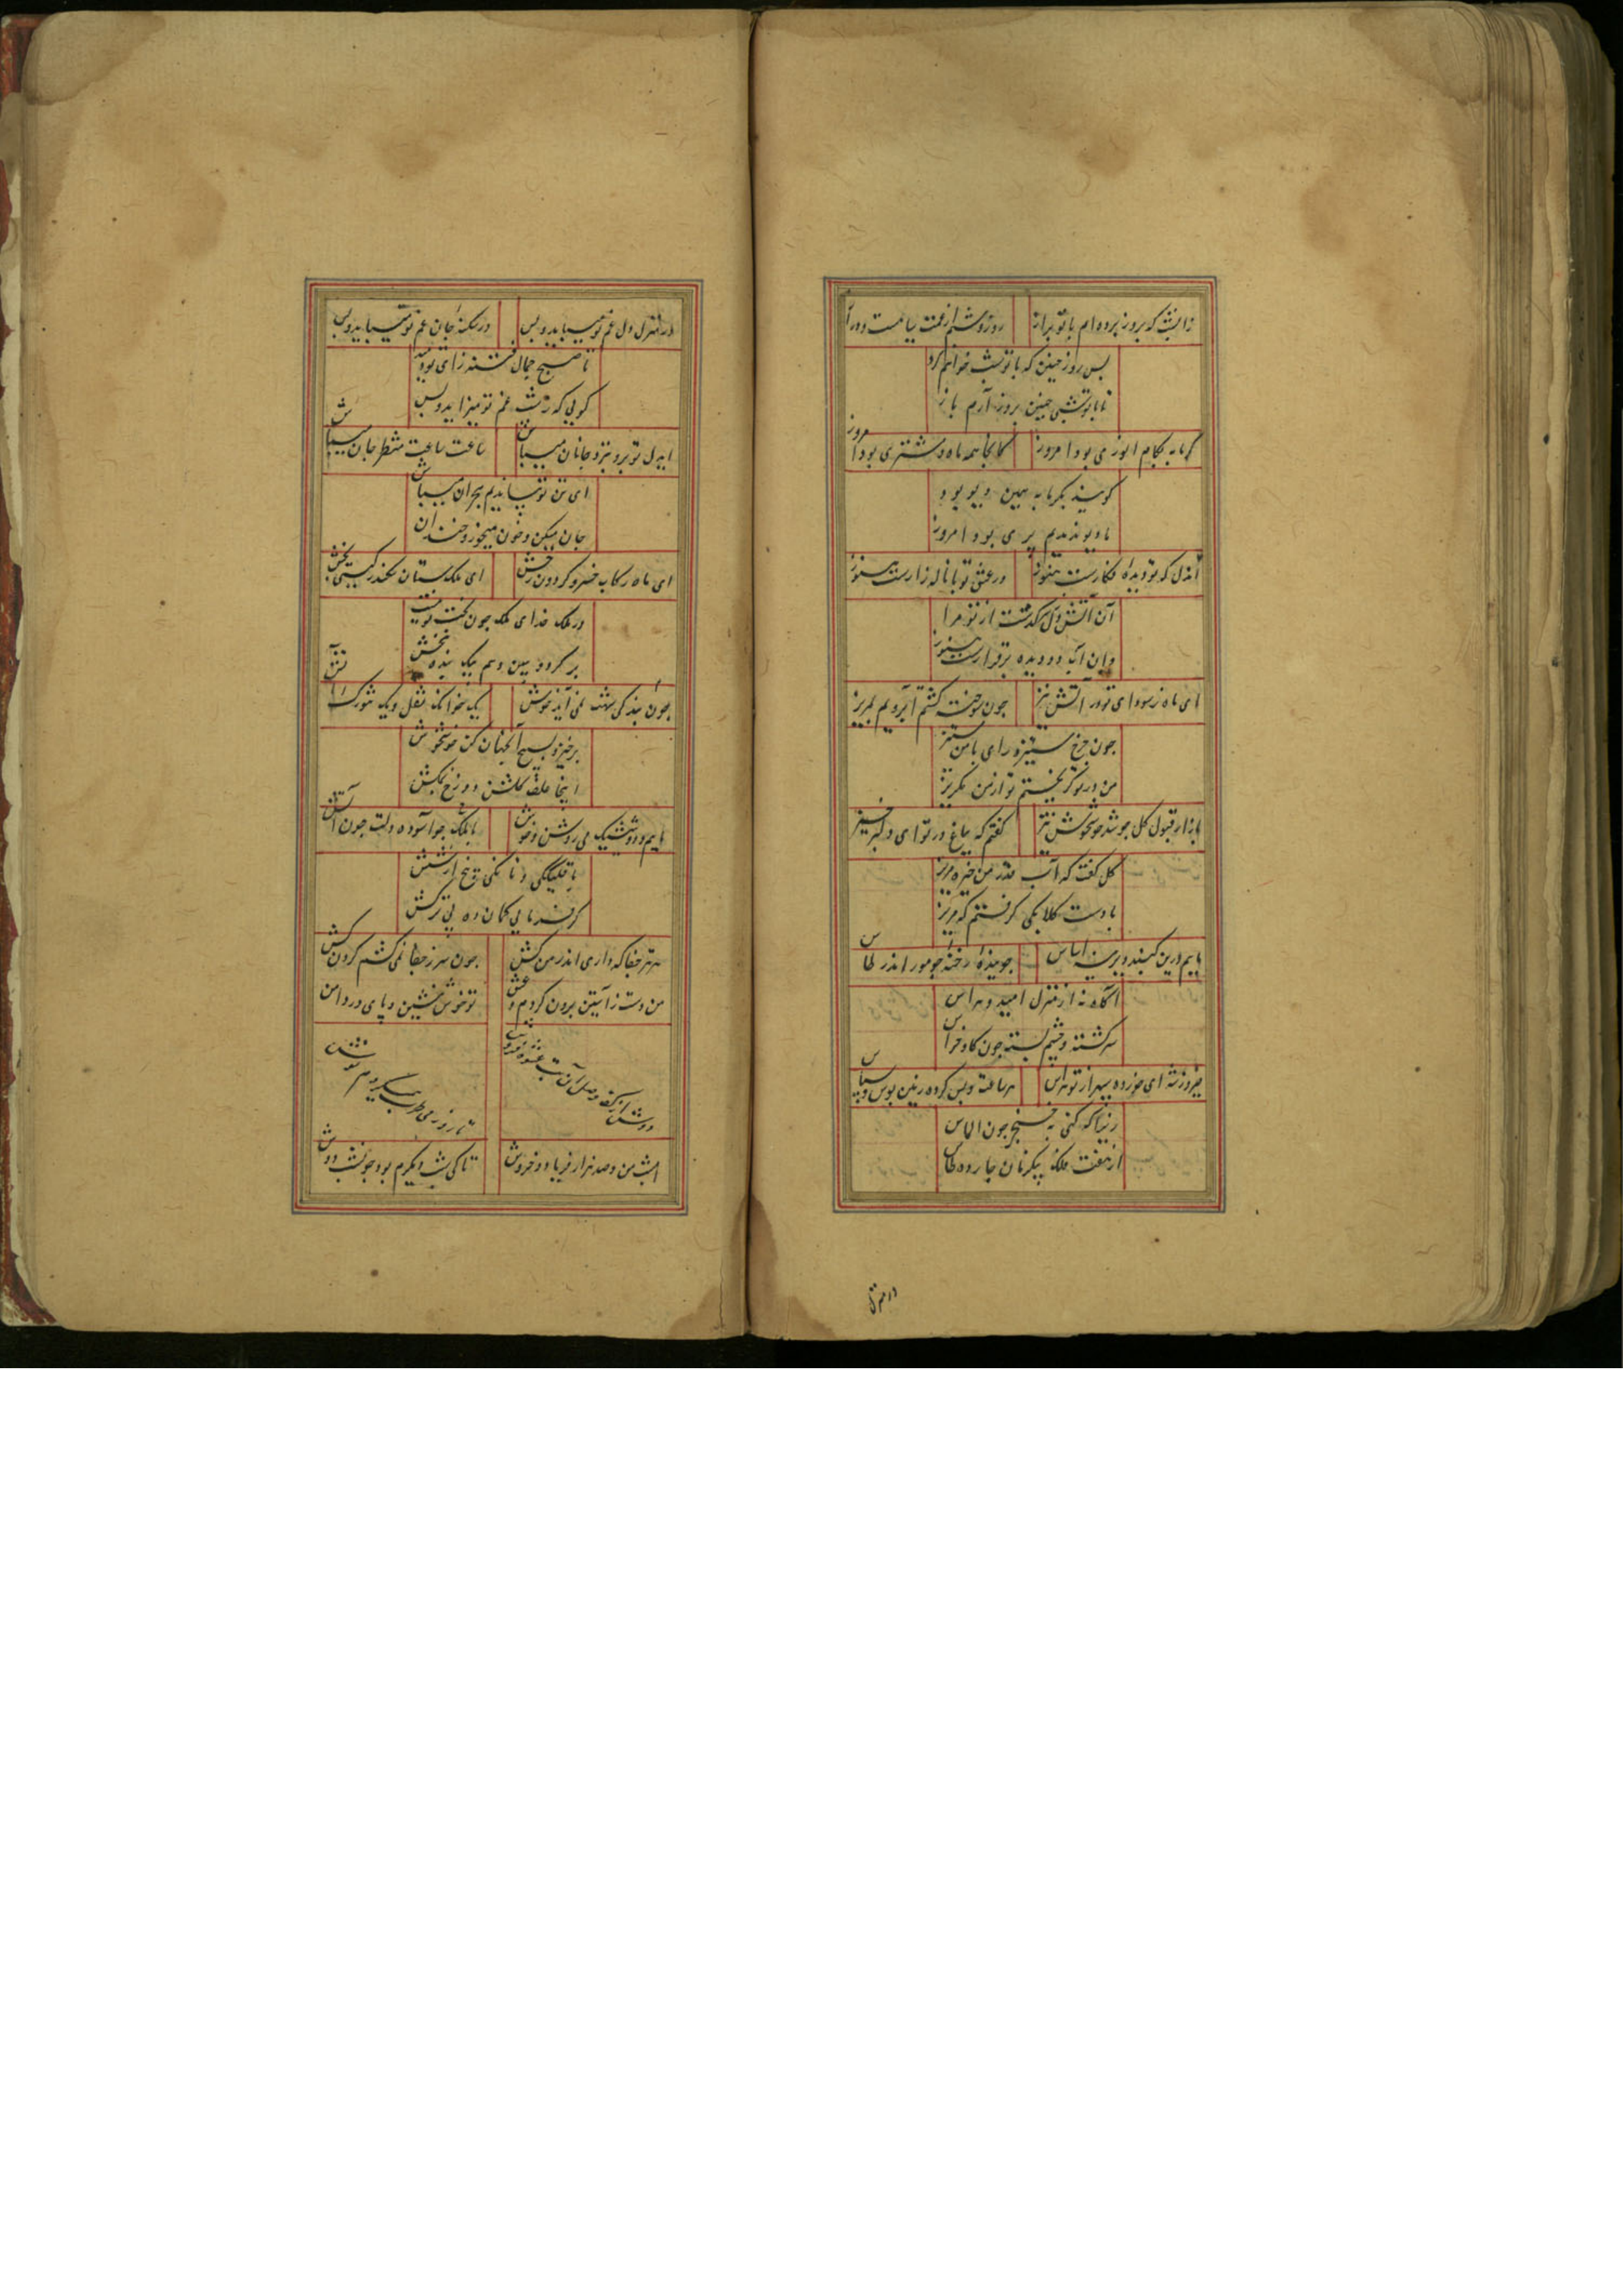 زانشب که بروز برده ام با تو براز
روز و شبم از غمت سیاهست و دراز
بس روز چنین که با تو شب خواهم کرد
تا با تو شبی چنین بروز آرم باز
گرمابه بکام انوری بود امروز
کانجا همه ماه و مشتری بود امروز
گویند بگرمابه همین دیو بود
ما دیو ندیدیم پری بود امروز
آندل که تو دیده فکارست هنوز
در عشق تو با ناله زارست هنوز
آن آتش دل سرگذشت از تو مرا
وان آب دو دیده برقرارست هنوز
ای ماه ز سودای تو در آتش تیز
چون سوخته گشتم آبرویم بمریز
چون چرخ ستیزه رای با من مستیز
من در تو گریختم تو از من مگریز
بازار قبول گل چو شد خوش خوش تیز
گفتم که بباغ در تو ای دلبر خیز
گل گفت که آب قدر من خیره مریز
بادست گلابگی گرفتم که مریز
ماییم درین گنبد دیرینه اساس
جوینده رخنه چو مور اندر طاس
آگاه نه از منزل امید و هراس
سرگشته و چشم بسته چون گاو خراس
فیروز شه ای خورده سپهر از تو هراس
هر ساعت و بس کرده زمین بوس و سپاس
زینها که کنی به خنجر چون الماس
از هفت فلک پیکرنان چارده طاس
در منزل دل غم تو میباید و بس
در سکنه جان غم تو میباید و بس
تا صبح جمال فتنه زای تو دمید
گویی که ز شب غم تو میزاید و بس
ایدل تو برو بنزد جانان میباش
ساعت ساعت منتظر جان میباش
ای تن تو بیا ندیم هجران میباش
جان میکن و خون میخور و خندان میباش
ای ماه رکاب خسرو گردون رخش
ای ملک ستان سکندر گیتی بخش
در ملک خدای ملک چون گشت تو بیت
بر گرد و ببین و هم بیک بنده ببخش
چون بندگی شهت نمی آید خوش
یک نخوانند نقل و یک شورک آتش
برخیز و بسیج آنجهان کن خوش خوش
اینجا علف گلشن دوزخ بمکش
ماییم و دو شیشکک می روشن و خوش
با قلیگکی و نانکی پنج از شش
گرفندمایی کمان ده بی ترکش
هر تیر جفا که داری اندر من کش
چون سر ز جفا نمی کشم گردن کش
من دست ز آستین برون کردم و عشق
تو خوش بنشین و پای در دامن کش
دوش از کف وصل آن بت عشوه فروش
تا روز می طرب همیکردم نوش
امشب من و صد هزار فریاد و خروش
تا کی شب دیگرم بود چون شب دوش